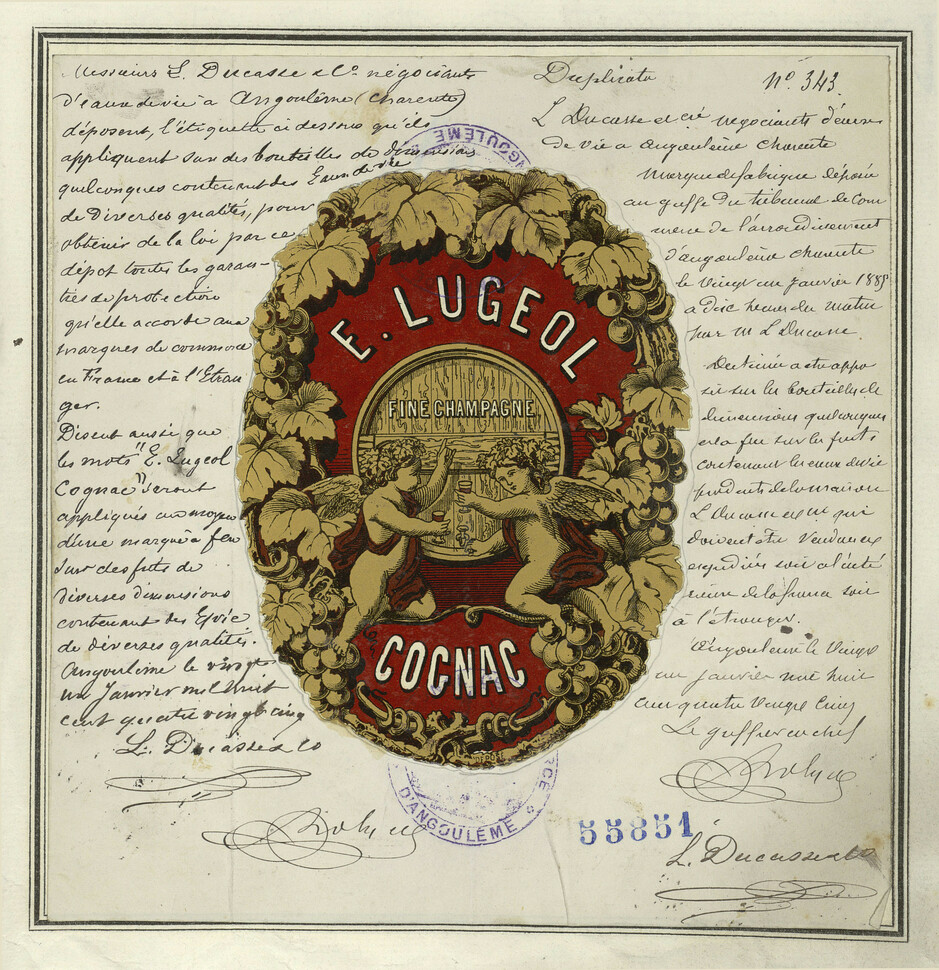 Messieurs L. Ducasse & Co négociants
d'eaux de vie à Angoulême (Charente)
déposent, l'étiquette ci dessous qu'ils
appliquent sur des bouteilles de dimensions
quelconques contenant des Eaux de vie
de Diverses qualités, pour
obtenir de la loi par ce
dépot toutes les garan-
ties de protection
qu'elle accorde aux
marques de commerce
en France et à l'Etran
ger.
Disent aussi que
les mots "E. Lugeol
Cognac" seront
appliqués au moyen
d'une marque à feu
sur des futs de
diverses dimensions
contenant des
de diverses qualités.
Angoulême le vingt
un Janvier mil huit
cent quatre vingt cinq
L. Ducasse & co
Duplicata
No. 343.
L Ducasse et cie négociants d'eaux
de vie a angoulême charente
Marque de fabrique déposée
au greffe du tribunal de com
merce de l'arrondissement
d'angoulême charente
le vingt un janvier 1885
a dix heures du matin
par M L Ducasse.
Destinée a etre appo
sée sur les bouteilles de
dimensions quelconques
et a feu sur les futs
contenant les eaux de vie
produits de la maison
L Ducasse et cie qui
doivent etre vendus ou
expédiés soit a l'inté
rieur de la france soit
à l'étranger.
Angoulême le vingt
un janvier mil huit
cent quatre vingt cinq
Le greffier en chef
L. Ducasse & co
E. LUGEOL
FINE CHAMPAGNE
COGNAC
ANGOULÊME
D'ANGOULÊME
55851